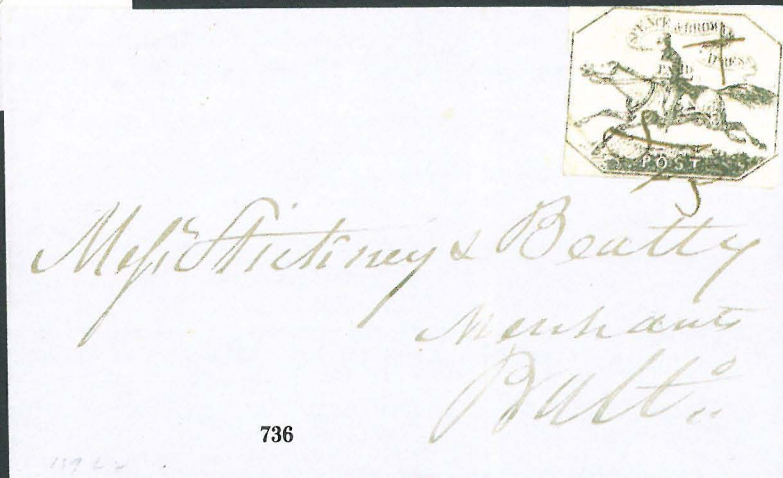 SPENCE & BROWN
EXPRESS
PAID
POST
5
Messrs Stickney & Beatty
Merchants
Balto
736